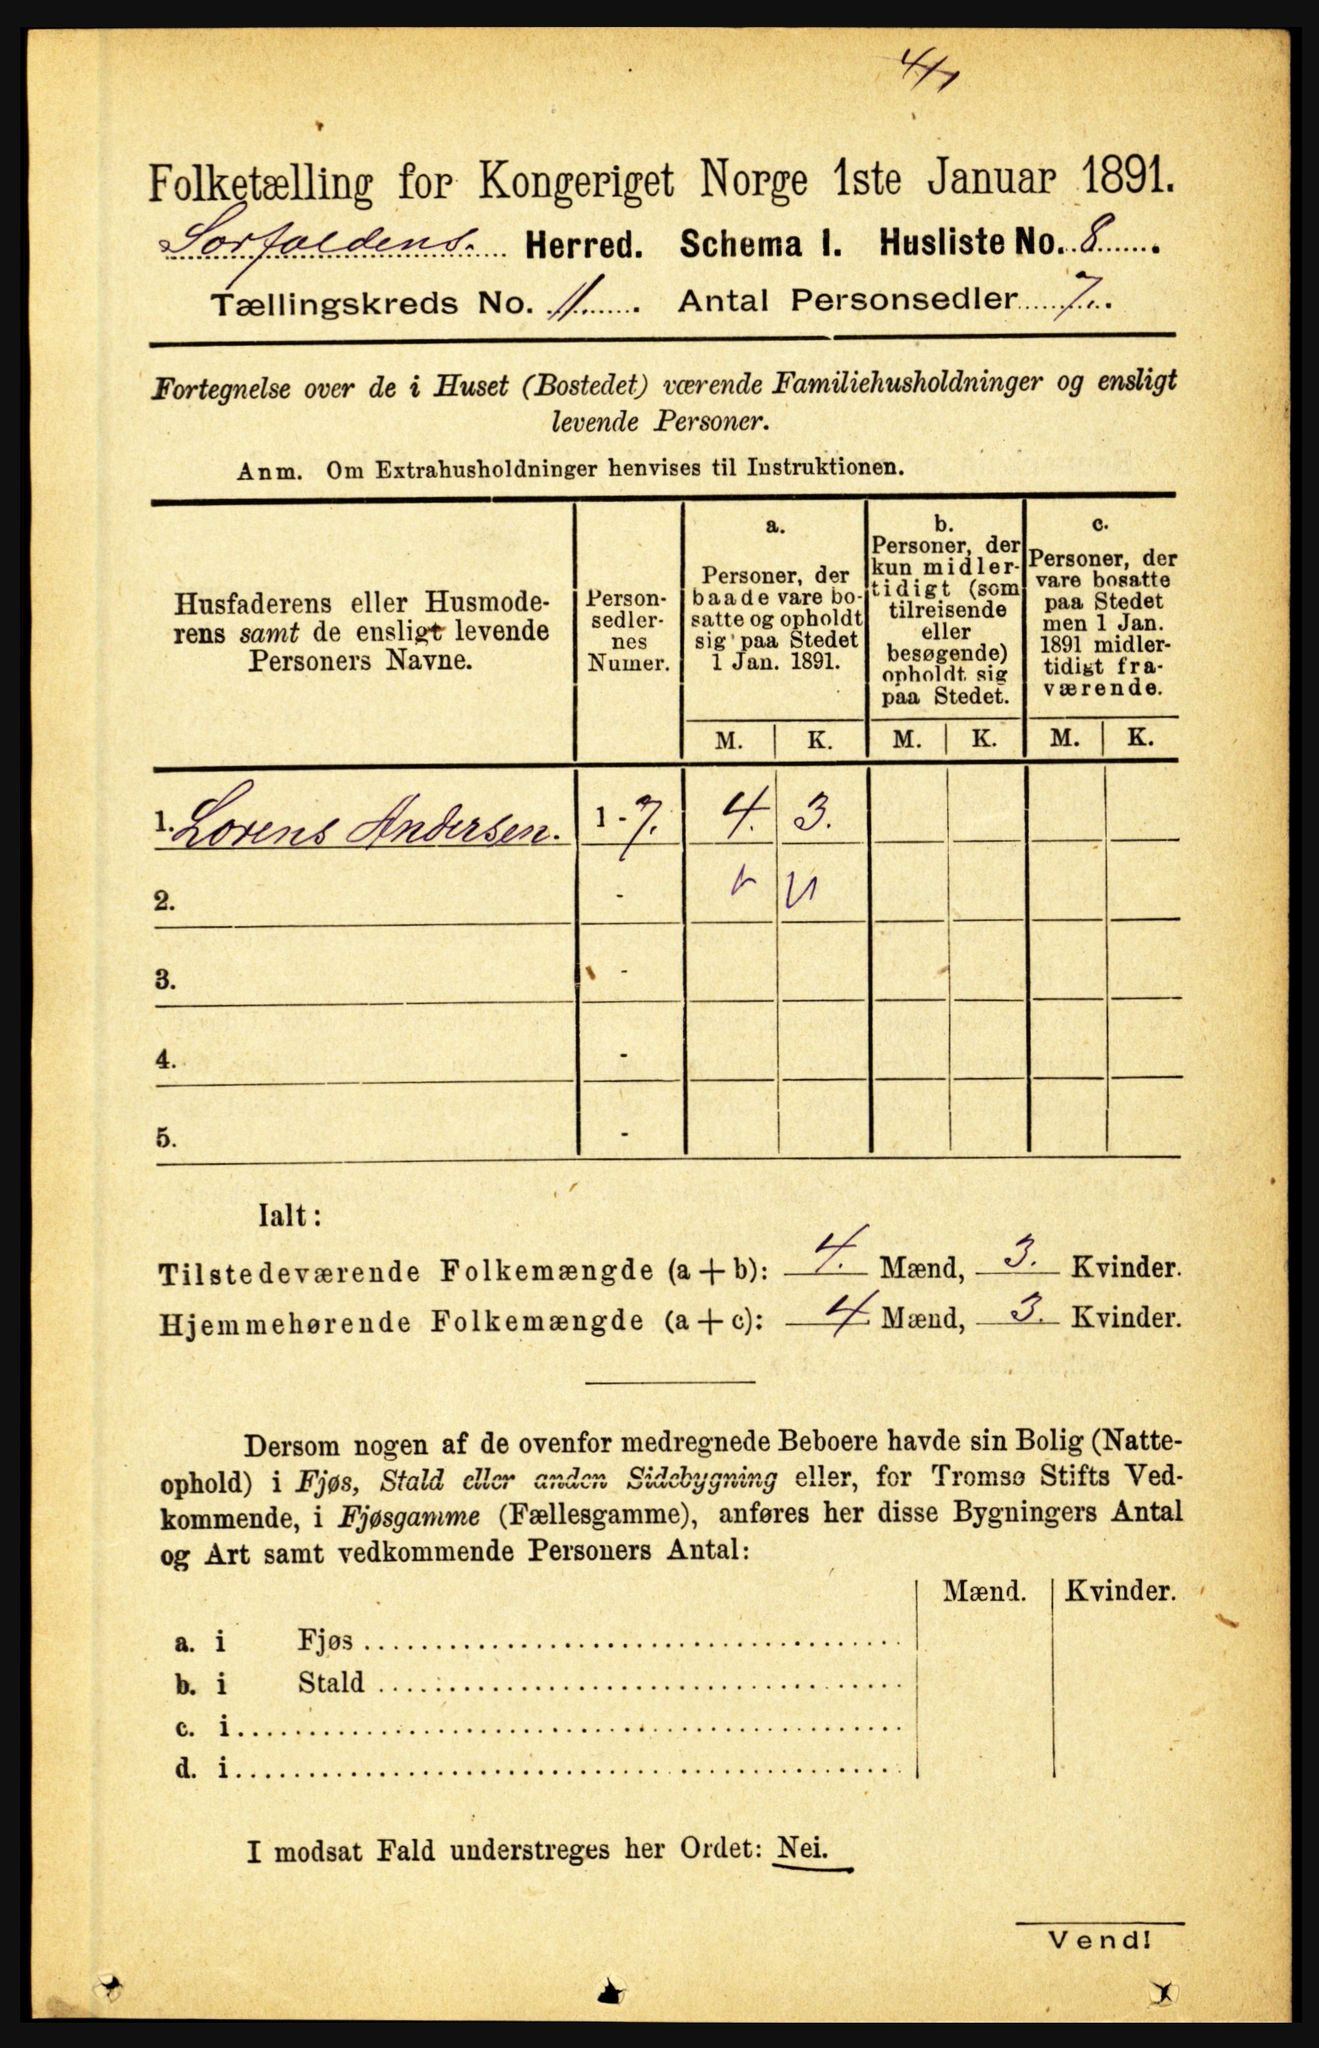 4
Folketælling for Kongeriget Norge 1ste Januar 1891.
Sorfoldens. Herred. Schema I. Husliste No. 8.
Tællingskreds No. 11. Antal Personsedler 7.
Fortegnelse over de i Huset (Bostedet) værende Familiehusholdninger og ensligt
levende Personer.
Anm. Om Extrahusholdninger henvises til Instruktionen.
Husfaderens eller Husmode-
rens samt de ensligt levende
Personers Navne.
Person-
sedler-
nes
Numer.
a.
Personer, der
baade vare bo-
satte og opholdt
sig paa Stedet
1 Jan. 1891.
b.
Personer, der
kun midler-
tidigt (som
tilreisende
eller
besøgende)
opholdt sig
paa Stedet.
c.
Personer, der
vare bosatte
paa Stedet
men 1 Jan.
1891 midler-
tidigt fra-
værende.
M. K. M. K. M. K.
1. Lorens Andersen. 1 - 7. 4. 3.
2. -
3. -
4. -
5. -
Ialt:
Tilstedeværende Folkemængde (a + b): 4. Mænd, 3. Kvinder.
Hjemmehørende Folkemængde (a + c): 4 Mænd, 3. Kvinder.
Dersom nogen af de ovenfor medregnede Beboere havde sin Bolig (Natte-
ophold) i Fjøs, Stald eller anden Sidebygning eller, for Tromsø Stifts Ved-
kommende, i Fjøsgamme (Fællesgamme), anføres her disse Bygningers Antal
og Art samt vedkommende Personers Antal:
Mænd. Kvinder.
a. i Fjøs
b. i Stald
c. i
d. i
I modsat Fald understreges her Ordet: Nei.
Vend!